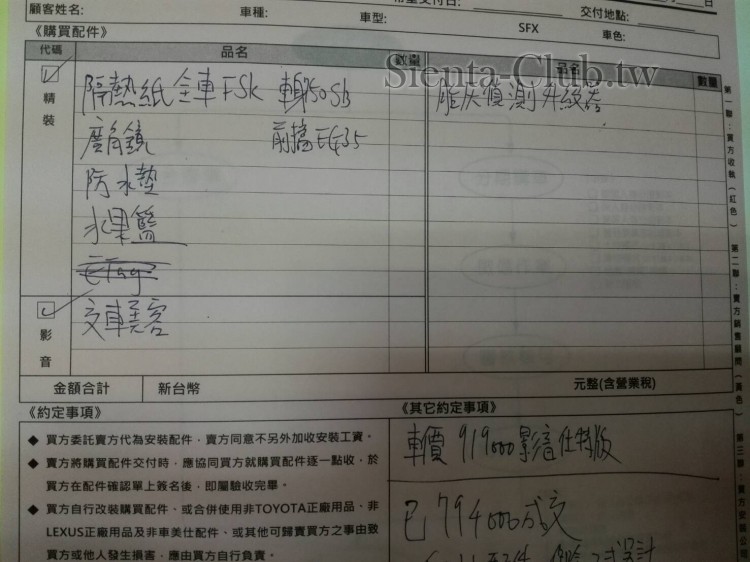 顧客姓名: 車種: 車型: SFX 交付地點:
車色:
《購買配件》
代碼 品名 數量 品名 數量
Sienta-Club.tw
精裝
隔熱紙 全車FSK 車身50SB
廣角鏡 前擋E435
防水墊
水果籃
ETag
影音
交車美容
胎灰偵測升級器
金額合計 新台幣 元整(含營業稅)
《約定事項》
◆ 買方委託賣方代為安裝配件,賣方同意不另外加收安裝工資。
◆ 賣方將購買配件交付時,應協同買方就購買配件逐一點收,於
買方在配件確認單上簽名後,即屬驗收完畢。
◆ 買方自行改裝購買配件、或合併使用非TOYOTA正廠用品、非
LEXUS正廠用品及非車美仕配件、或其他可歸責買方之事由致
買方或他人發生損害,應由買方自行負責。
《其它約定事項》
車價 919000 影音仕特版
已 794000成交
第一聯:賣方收執(紅色)
第二聯:賣方銷售顧問(黃色)